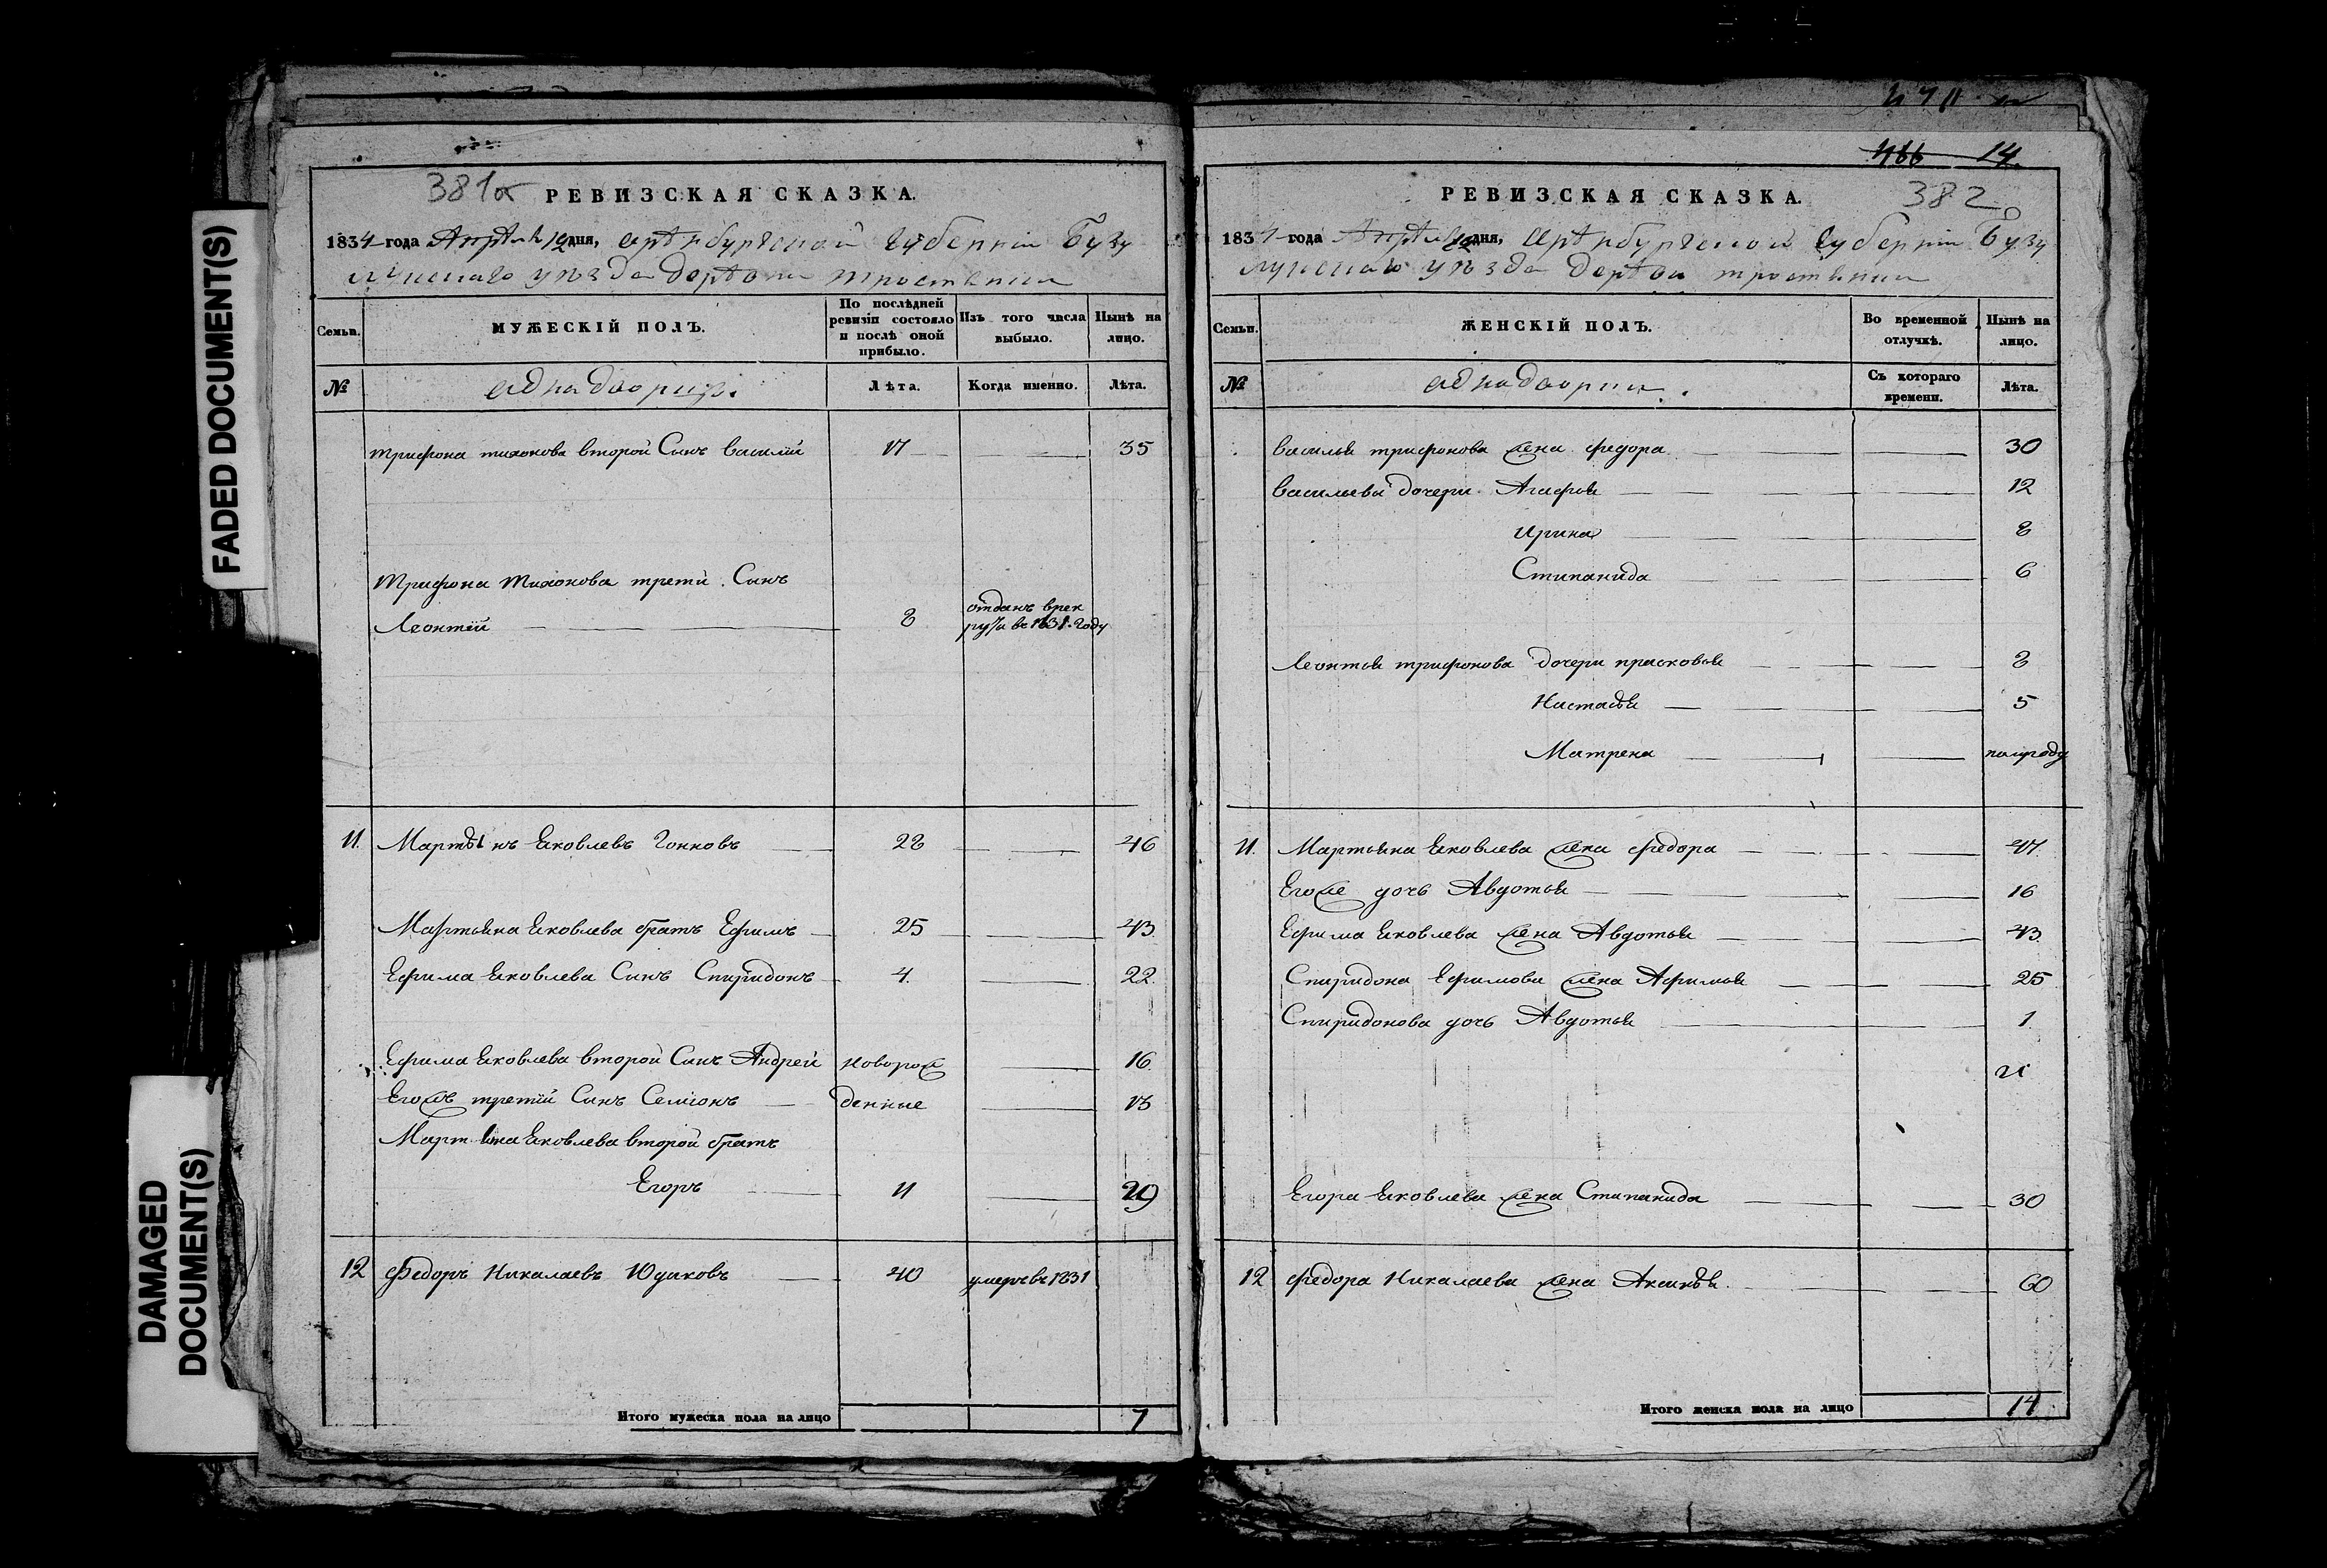 FADED DOCUMENT(S)
DAMAGED
DOCUMENT(S)
381об
РЕВИЗСКАЯ СКАЗКА.
1834 года Апреля 12 дня, Аренбургской губернии Бузу
лукскаго уезда деревни тростянки
Семьи.
МУЖЕСКІЙ ПОЛЪ.
По послѣдней ревизіи состояло и послѣ оной прибыло.
Изъ того числа выбыло.
Нынѣ на лицо.
№
аднадворцы.
Лѣта.
Когда именно.
Лѣта.
трифона тихонова второй Сынъ василий 17 35
Трифона Тихонова трети Сынъ
Леонтий 8 отданъ врек
руты въ 1831 году
11. Мартынъ Яковлевъ Гонковъ 28 46
Мартьяна Яковлева братъ Ефимъ 25 43
Ефима Яковлева Сынъ Спиридонъ 4 22
Ефима Яковлева второй Сынъ Андрей новорож 16
Егожъ третий Сынъ Семионъ денные 13
Мартьяна Яковлева второй братъ
Егоръ 11 29
12 Федоръ Никалаевъ Юдаковъ 40 умеръ въ 1831
Итого мужеска пола на лицо 7
466 14
382
РЕВИЗСКАЯ СКАЗКА.
1834 года Апреля 12 дня, Аренбургской губернии Бузу
лукскаго уезда деревни тростянки
Семьи.
ЖЕНСКІЙ ПОЛЪ.
Во временной отлучкѣ.
Нынѣ на лицо.
№
аднадворки.
Съ котораго времени.
Лѣта.
василья трифонова жена федора 30
васильева дочери Агафья 12
Ирина 8
Стипанида 6
Леонтья трифонова дочери прасковья 8
Настасья 5
Матрена полгоду
11. Мартьяна Яковлева жена федора 47
Егоже дочь Авдотья 16
Ефима Яковлева жена Авдотья 43
Спиридона Ефимова жена Афимья 25
Спиридонова дочь Авдотья 1
Егора Яковлева жена Стипанида 30
12 федора Никалаева жена Аксинья 60
Итого женска пола на лицо 14